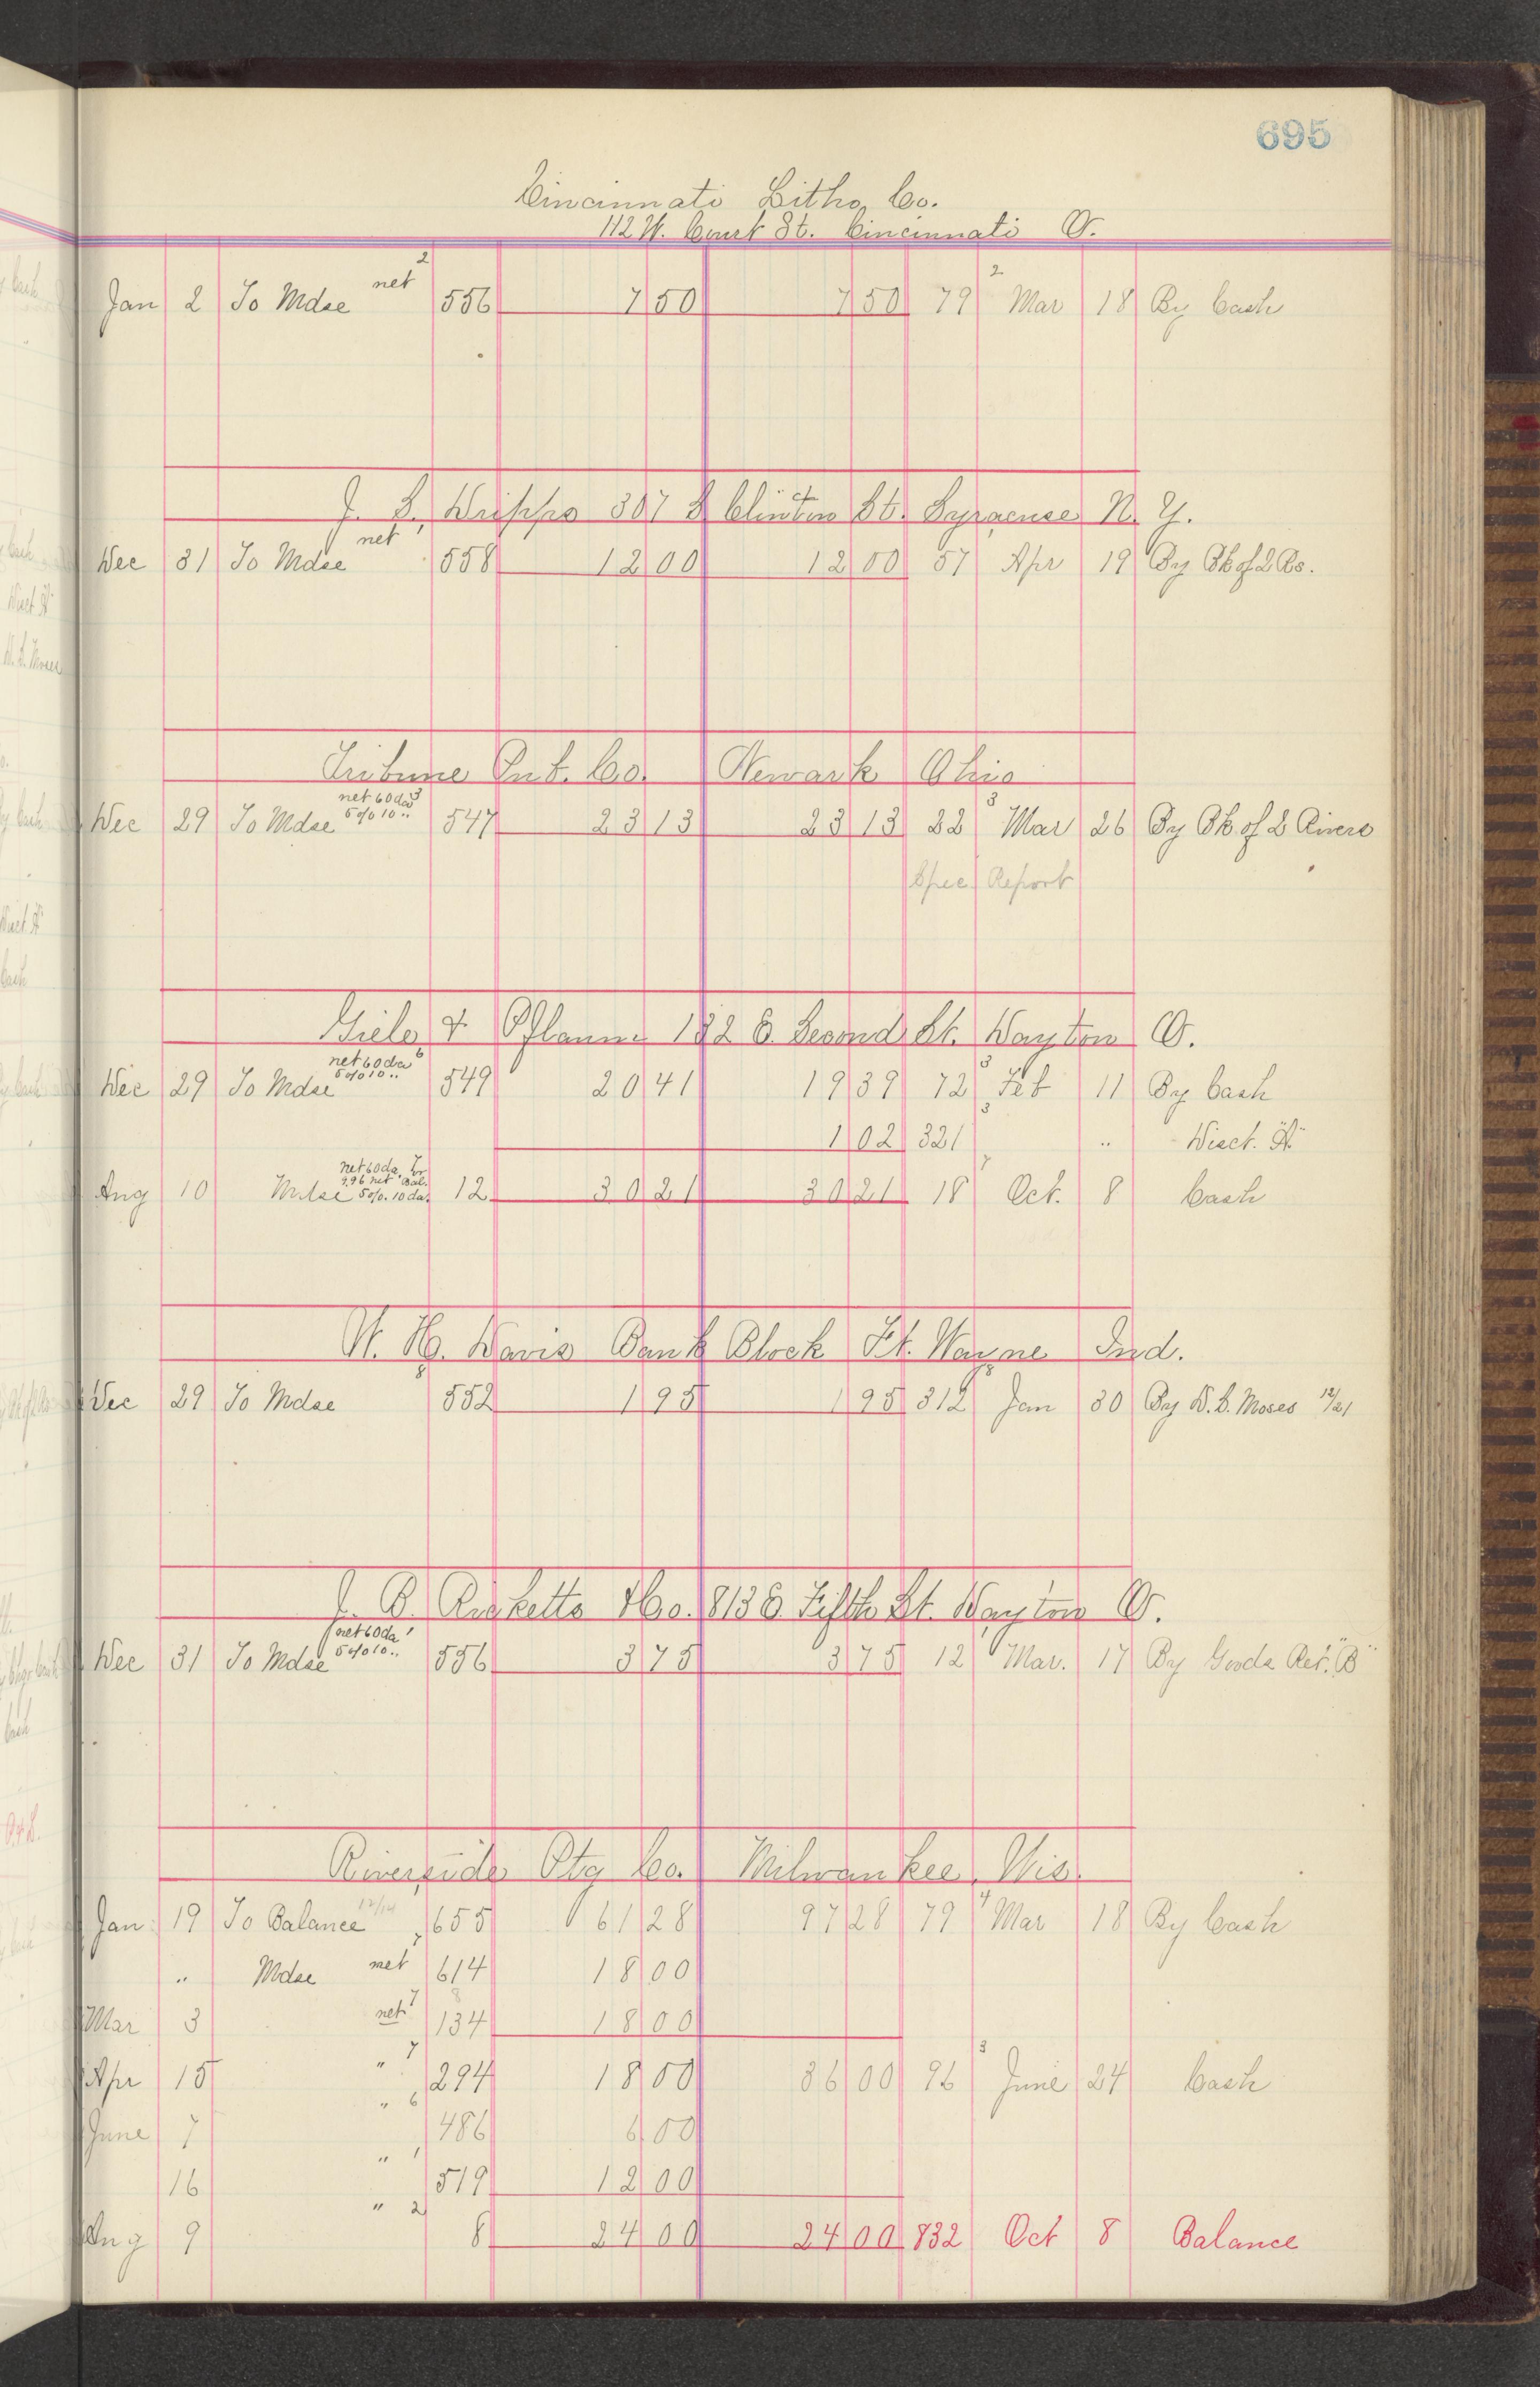 695
Cincinnati Litho Co.
112 W. Court St. Cincinnati O.
Jan 2 To Mdse net 2 556 7 50 7 50 79 2 Mar 18 By Cash
J. S. 307 S Clinton St. Syracuse N. Y.
Dec 31 To Mdse net 558 12 00 12 00 57 Apr 19 By Bk of 2 Rs.
Tribune Pub. Co. Newark Ohio
Dec 29 To Mdse net 60 da 3 5% 10 .. 547 23 13 23 13 22 3 Mar 26 By Bk of 2 Rivers
Spec Report
& Pflaum 132 E. Second St. Dayton O.
Dec 29 To Mdse net 60 da 6 5% 10 .. 549 20 41 19 39 72 3 Feb 11 By Cash
1 02 321 3 .. Disct. "A"
Aug 10 Mdse net 60 da. 7 or 9.96 net Bal. 5% 10 da. 12 30 21 30 21 18 7 Oct. 8 Cash
W. H. Davis Bank Block Ft. Wayne Ind.
Dec 29 To Mdse 8 552 1 95 1 95 312 8 Jan 30 By D. S. Moses 12/21
J. B. Ricketts & Co. 813 E. Fifth St. Dayton O.
Dec 31 To Mdse net 60 da 1 5% 10 .. 556 3 75 3 75 12 1 Mar. 17 By Goods Ret. "B"
Riverside Ptg Co. Milwaukee, Wis.
Jan 19 To Balance 12/14 655 61 28 97 28 79 4 Mar 18 By Cash
" Mdse net 7 614 18 00
Mar 3 net 7 134 18 00
Apr 15 " 7 294 18 00 36 00 96 3 June 24 Cash
June 7 " 6 486 6 00
16 " 1 519 12 00
Aug 9 " 2 8 24 00 24 00 832 Oct 8 Balance